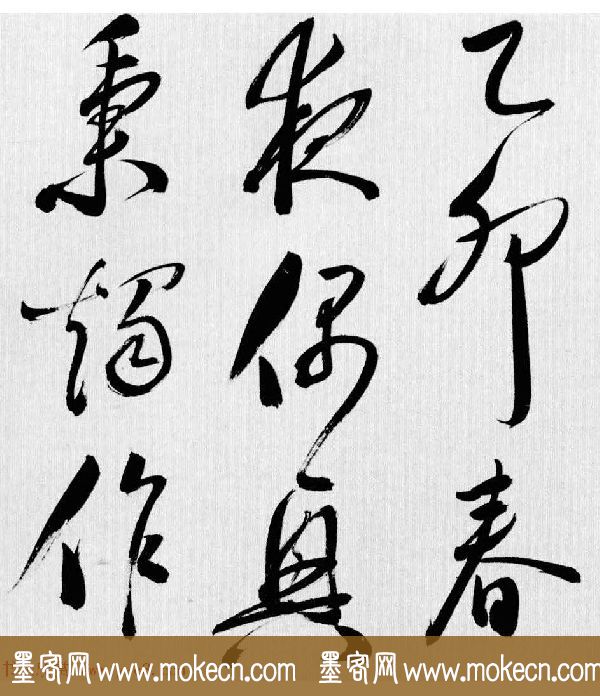 乙卯春
夜偶興
秉燭作
墨客网 www.mokecn.com 墨客网 www.mokecn.com